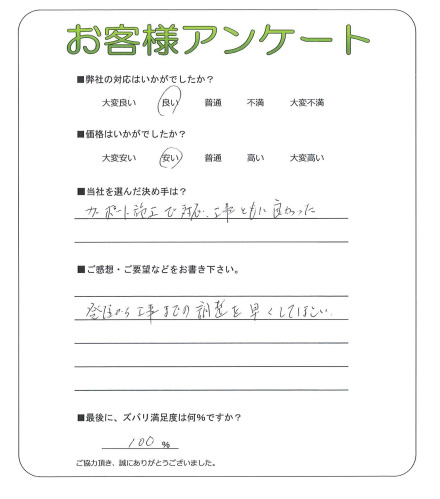 お客様アンケート
■弊社の対応はいかがでしたか？
大変良い 良い 普通 不満 大変不満
■価格はいかがでしたか？
大変安い 安い 普通 高い 大変高い
■当社を選んだ決め手は？
カーポート施工で対応、工事ともに良かった
■ご感想・ご要望などをお書き下さい。
発注から工事までの調整を早くしてほしい。
■最後に、ズバリ満足度は何％ですか？
100 ％
ご協力頂き、誠にありがとうございました。